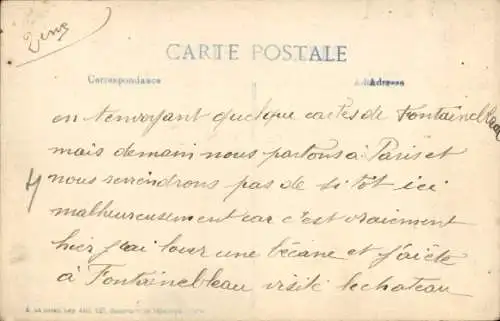 2eme
CARTE POSTALE
Correspondance Adresse
en t'envoyant quelque cartes de Fontainebleau
mais demain nous partons à Paris et
nous reviendrons pas de si tôt ici
malheureusement car c'est vraiment
hier j'ai louer une bécane et j'ai été
à Fontainebleau visité le chateau